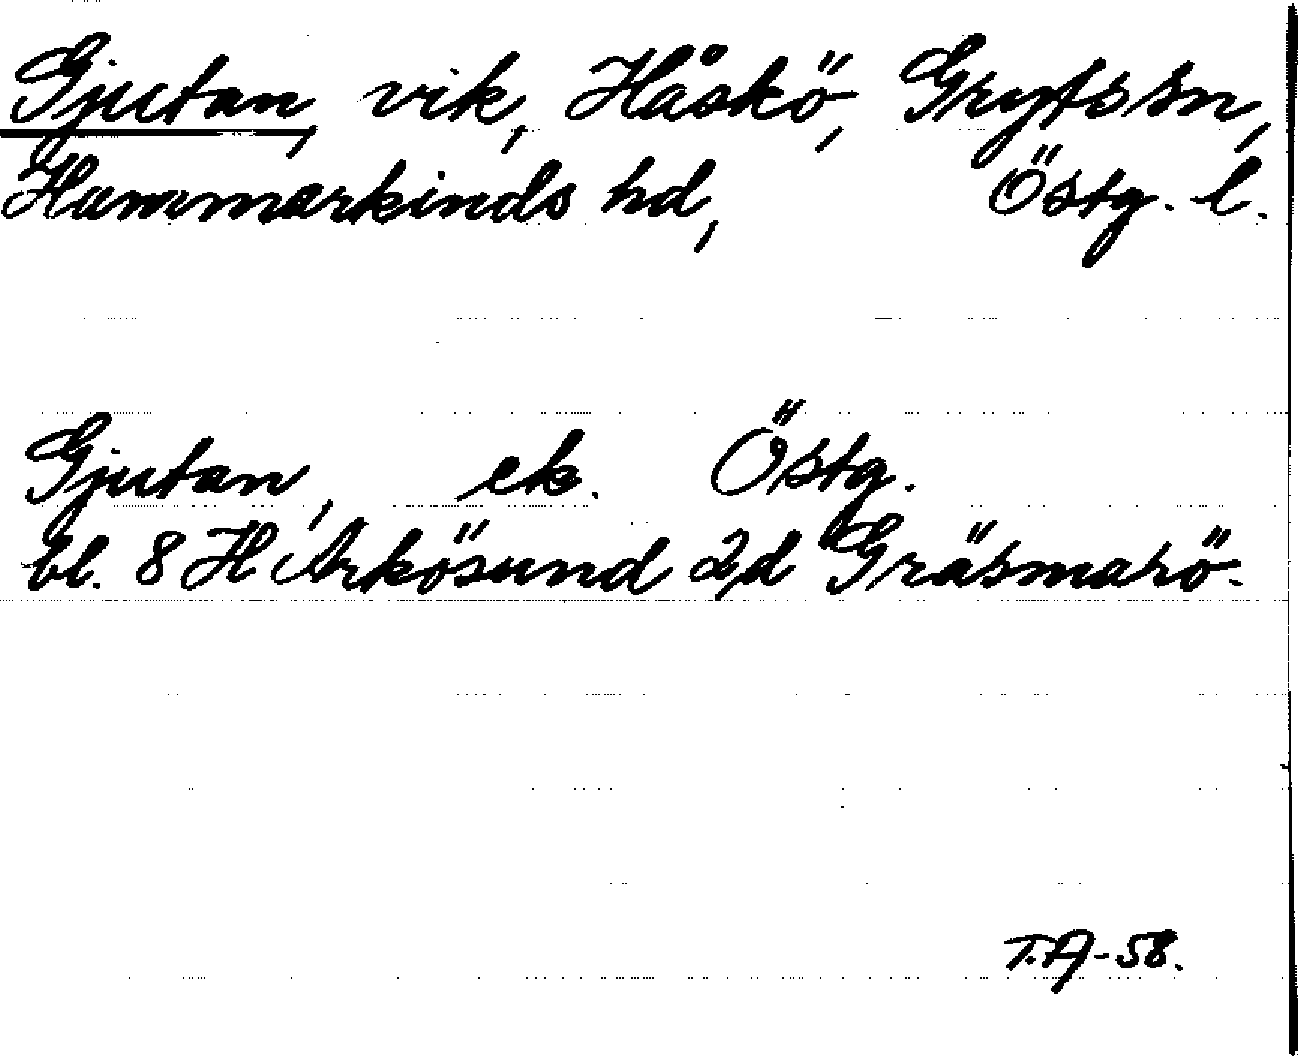 Gjutan, vik, Håskö, Gryts sn,
Hammarkinds hd, Östg. l.
Gjutan, ek. Östg.
bl. 8 H Arkösund 2d Gräsmarö.
T.A-58.